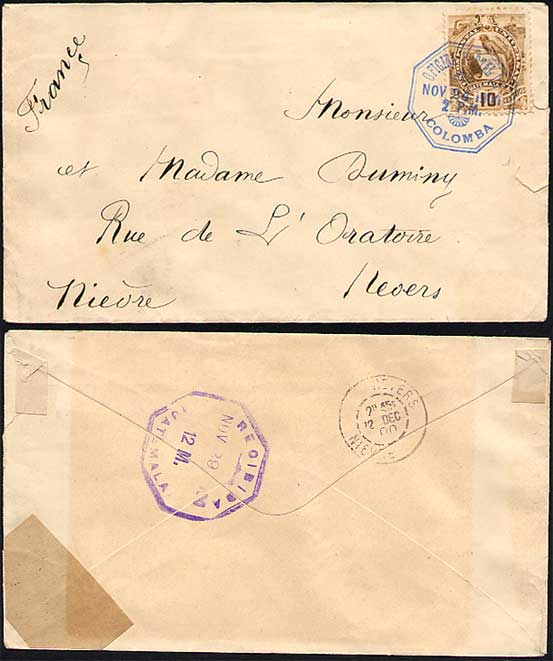 France
Monsieur
et Madame Duminy
Rue de L'Oratoire
Nevers
Nièvre
NOV
2 P.M.
COLOMBA
10
RECIBIDA
NOV 29
12 M.
GUATEMALA
2
NEVERS
12 DEC
00
NIEVRE